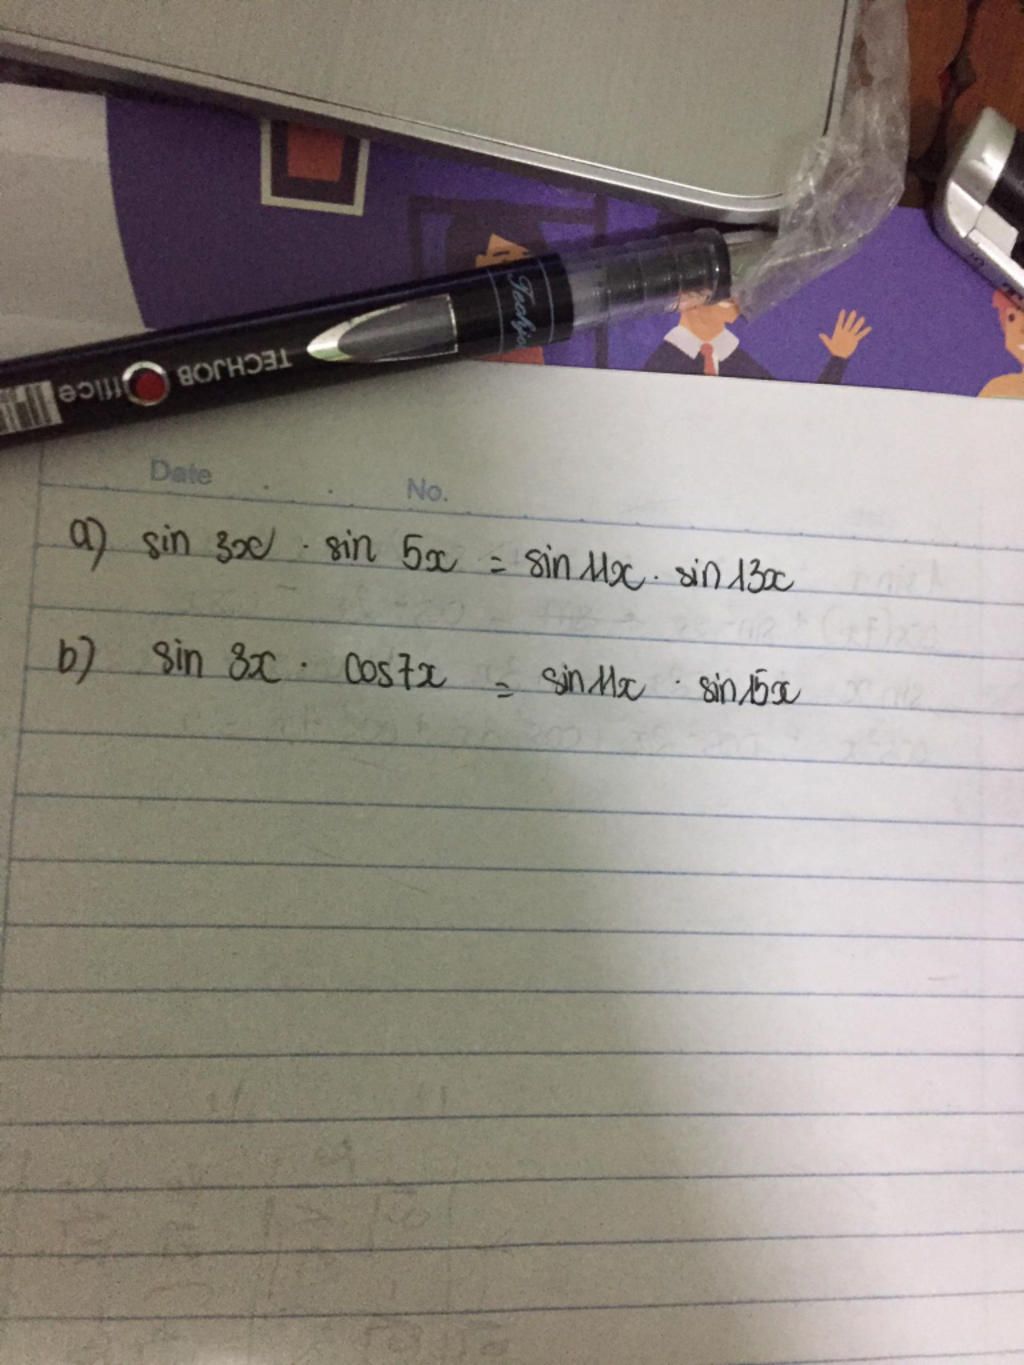 Techjo
TECHJOB Office
Date No.
a) sin 3x . sin 5x = sin 11x . sin 13x
b) sin 8x . cos7x = sin 11x . sin 15x